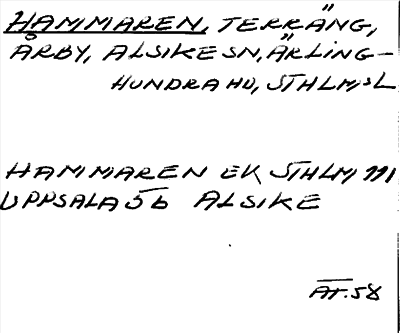 HAMMAREN, TERRÄNG,
ÅRBY, ALSIKE SN, ÄRLING-
HUNDRA HD, STHLM:SL
HAMMAREN EK STHLM 111
UPPSALA 56 ALSIKE
AT.58